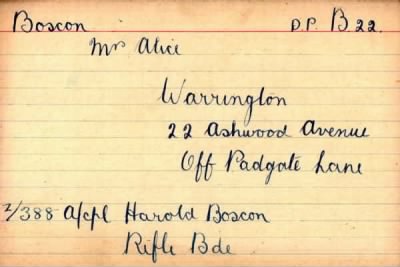 Boscon D.P. B 22.
Mrs Alice
Warrington
22 Ashwood Avenue
Off Padgate Lane
2/388 A/cpl Harold Boscon
Rifle Bde